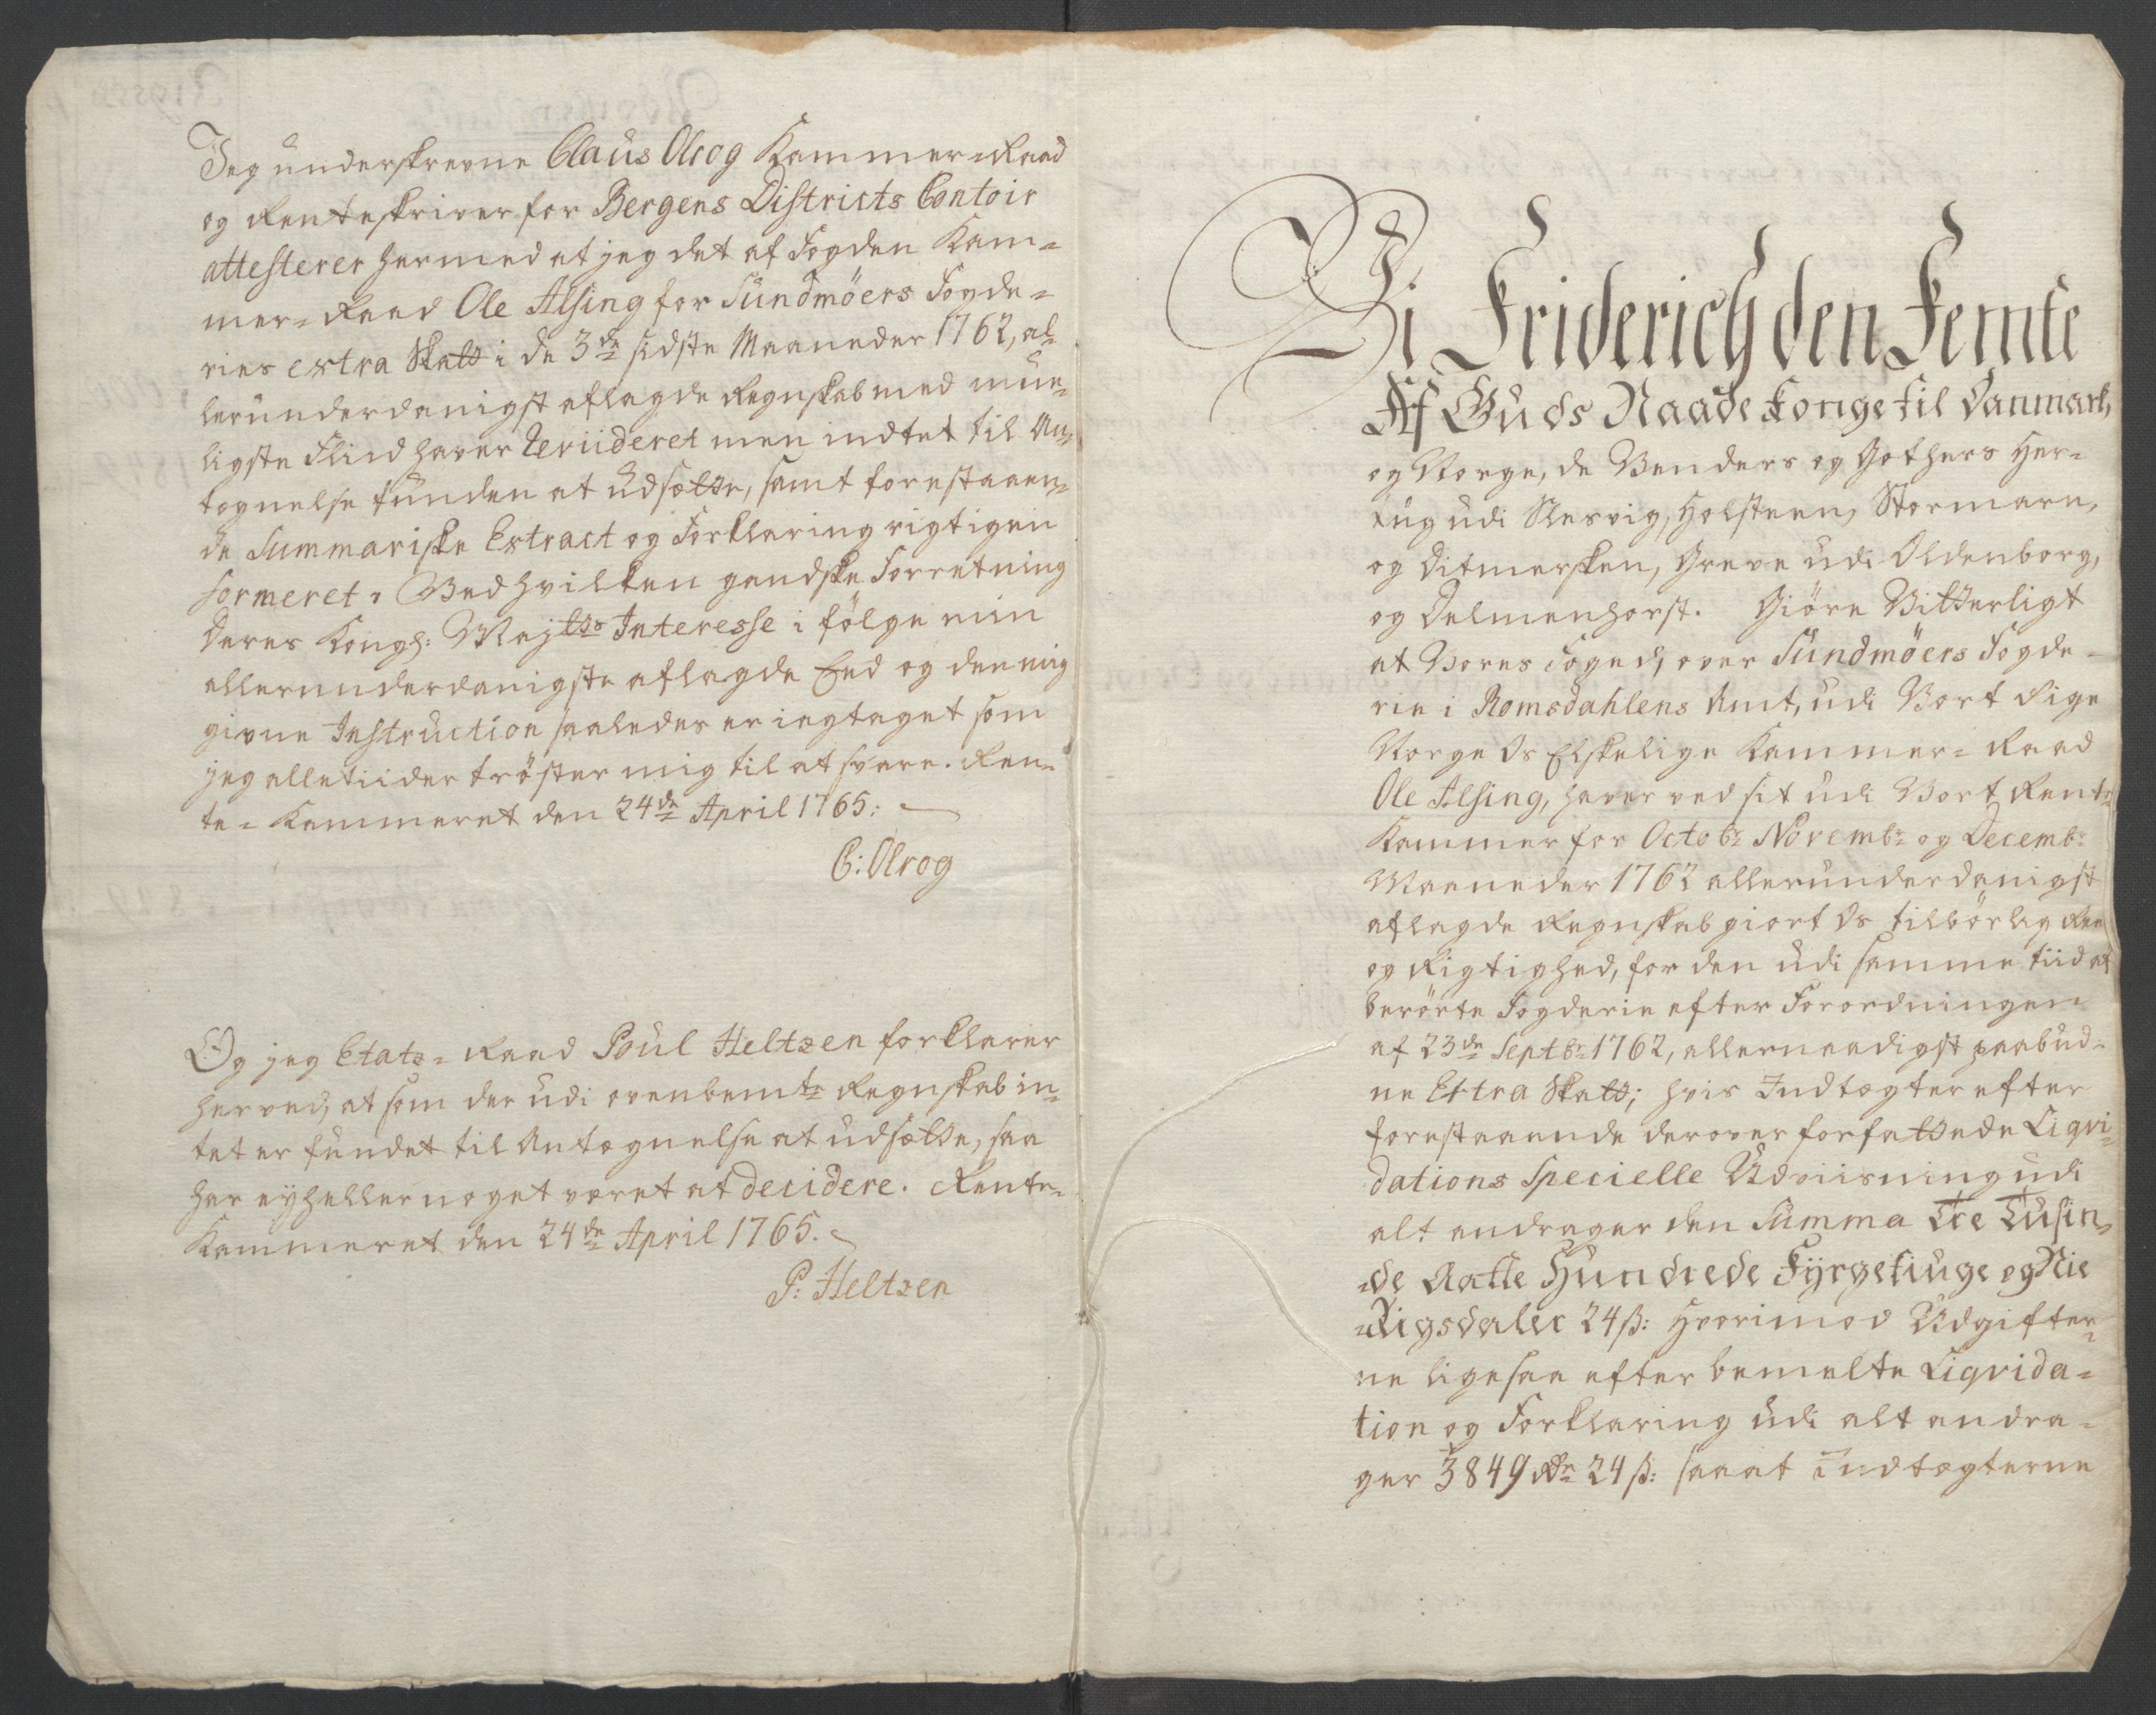 Jeg underskrevne Claus Olrog Kammer-Raad
og Renteskriver for Bergens Districts Contoir
attesterer hermed at jeg det af Fogden Kam-
mer-Raad Ole Alsing for Sundmöers Fogde-
ries extra Skatt i de 3de sidste Maaneder 1762, al-
lerunderdanigst aflagde Regnskab med mue-
ligste Fliid haver Reviideret men indtet til An-
tegnelse funden at udsætte, samt forestaaen-
de Summariske Extract og Forklaring rigtigen
formeret, Ved hvilken gandske Forretning
Deres Kongl: Majts Interesse i fölge min
allerunderdanigste aflagde Eed og den mig
givne Instruction saaledes er iagtaget som
jeg alletiider tröster mig til at svare. Ren-
te-Kammeret den 24de April 1765:
C: Olrog
Og jeg Etatz-Raad Poul Heltzen forklarer
herved, at som der udi ovenbemte Regnskab in-
tet er fundet til Antegnelse at udsætte, saa
har ey heller noget været at decidere. Rente-
Kammeret den 24de April 1765.
P: Heltzen
Vi Friderich den Femte
Af Guds Naade Konge til Danmark,
og Norge, de Venders og Gothers Her-
tug udi Slesvig, Holsteen, Stormarn,
og Ditmersken, Greve udi Oldenborg,
og Delmenhorst. Giöre Vitterligt
at Vores Foged, over Sundmöers Fogde-
rie i Romsdahlens Amt, udi Vort Rige
Norge Os Elskelige Kammer-Raad
Ole Alsing, haver ved sit udi Vort Rente
Kammer for Octobr Novembr og Decembr
Maaneder 1762 allerunderdanigst
aflagde Regnskab giort Os tilbörlig Ree
og Rigtighed, for den udi samme tiid af
berörte Fogderie efter Forordningen
af 23de Septbr 1762, allernaadigst paabud-
ne Extra Skatt; hvis Indtægter efter
forestaaende derover forfattede Liqvi-
dations Specielle Udviisning udi
alt andrager den Summa Tre Tusin-
de Aatte Hundrede Fyrgetiuge og Nie
Rigsdaler 24 ß: Hvorimod Udgifter-
ne ligesaa efter bemelte Liqvida-
tion og Forklaring udi alt andra-
ger 3849 Rdr 24 ß: saa at Indtægterne